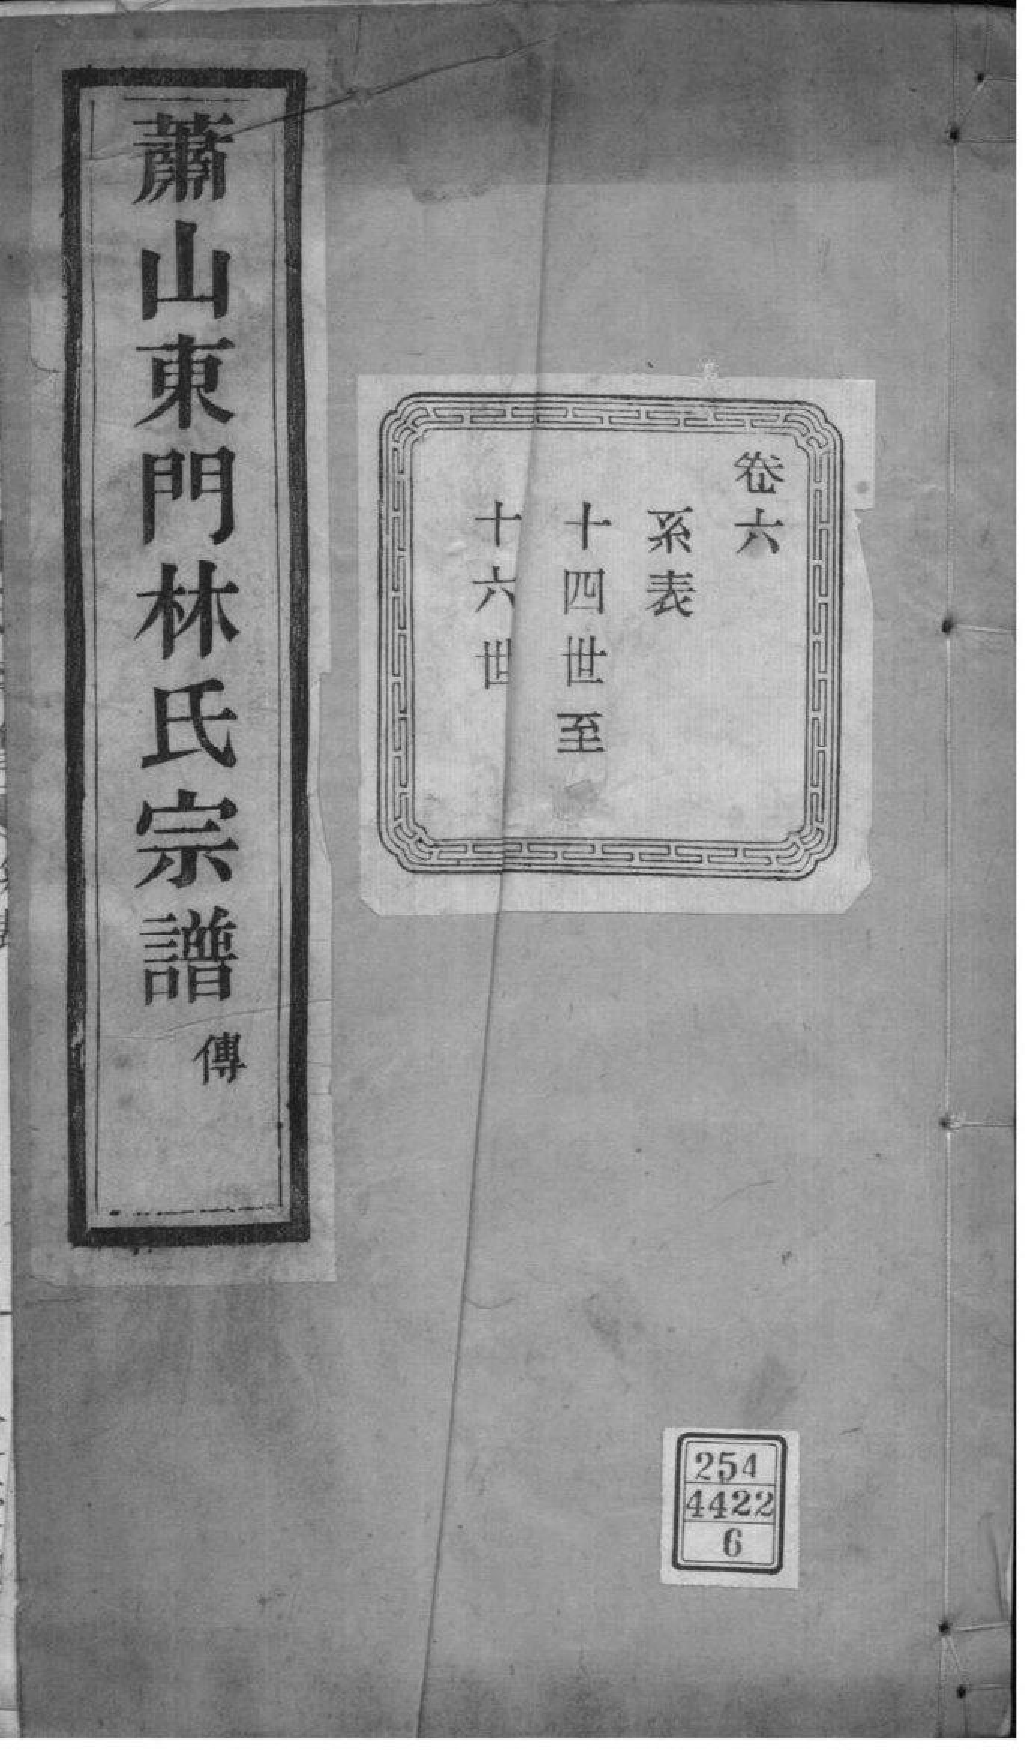 蕭山東門林氏宗譜 傳
卷六
系表
十四世至
十六世
254
4422
6